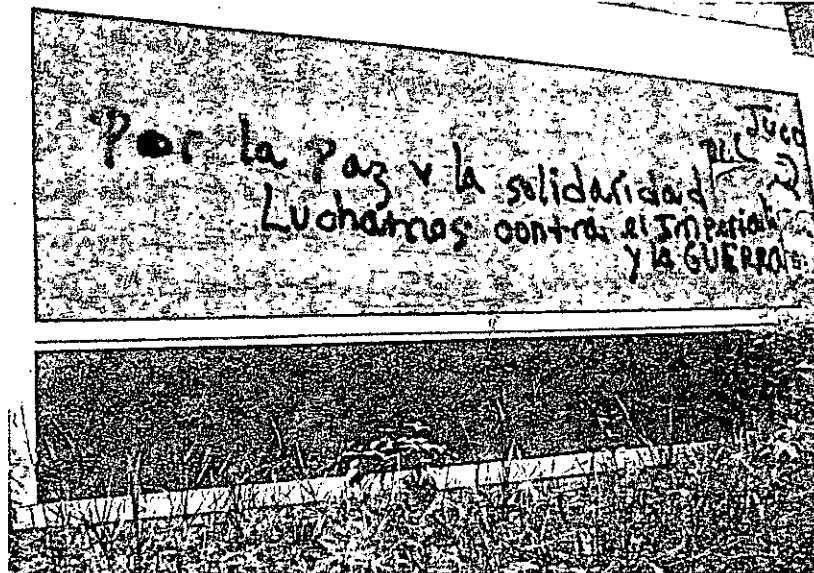 Por la Paz y la solidaridad
Luchamos contra el Imperiali
y la GUERRA
JUCO